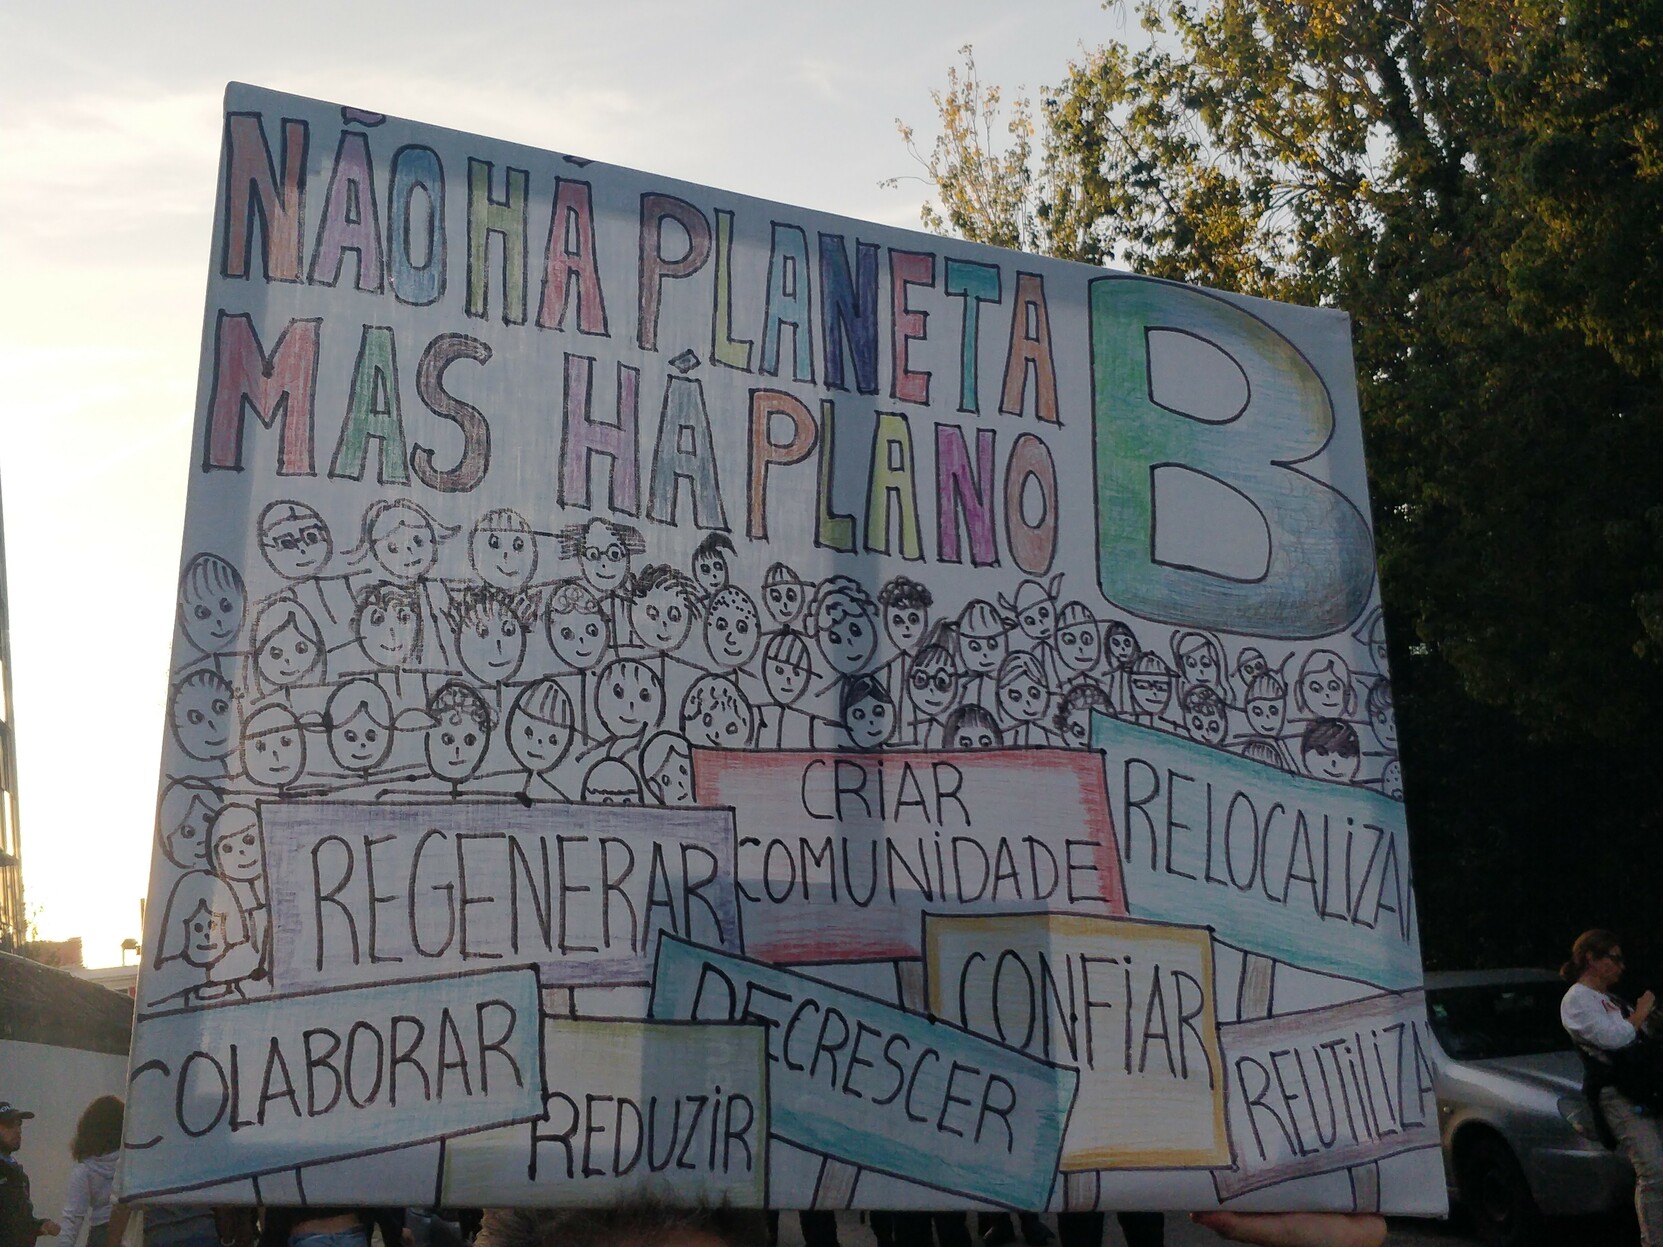 NÃO HÁ PLANETA B
MAS HÁ PLANO
CRiAR
COMUNiDADE
RELOCALiZA
REGENERAR
CONFiAR
DECRESCER
COLABORAR
REDUZiR
REUTiLiZA